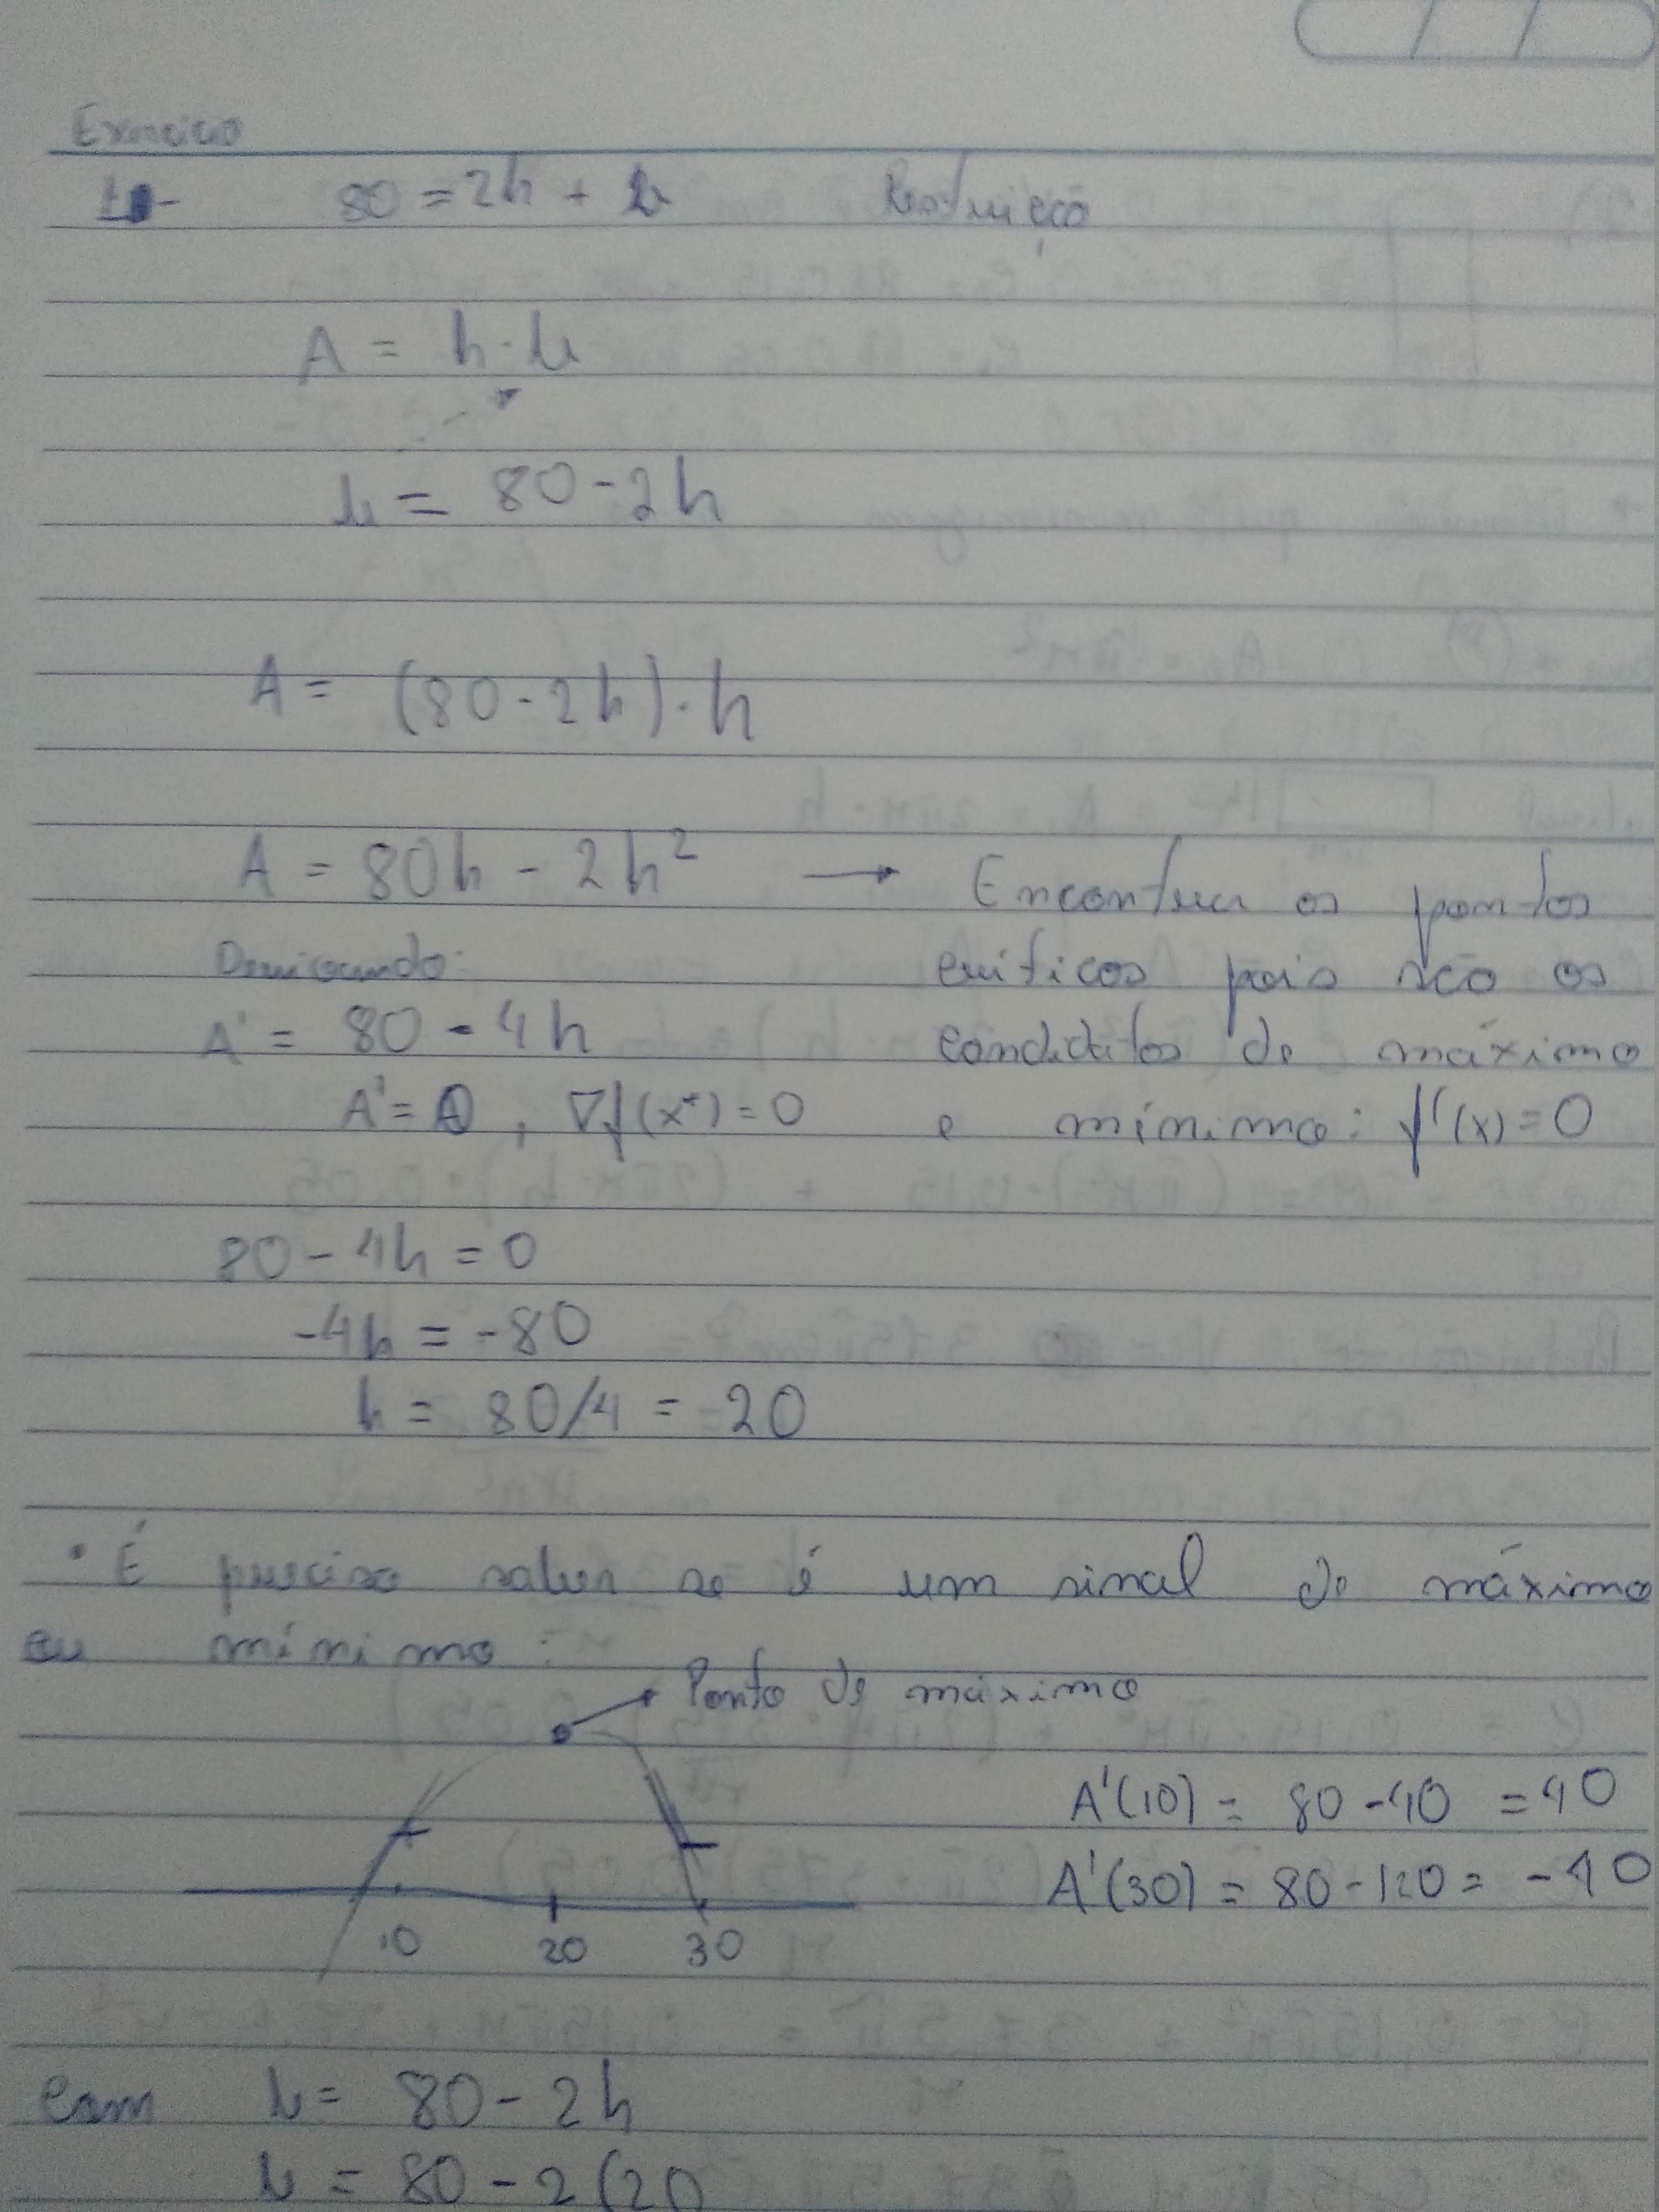 Exercício
1- 80 = 2h + b Restrição
A = h·b
b = 80-2h
A = (80-2h)·h
A = 80h - 2h² → Encontrar os pontos
críticos pois são os
candidatos de máximo
e mínimo: f'(x)=0
Derivando:
A' = 80 - 4h
A' = 0, ∇f(x*)=0
80 - 4h = 0
-4h = -80
h = 80/4 = 20
• É preciso saber se é um sinal de máximo
ou mínimo:
Ponto de máximo
A'(10) = 80-40 = 40
A'(30) = 80-120 = -40
10 20 30
com b = 80 - 2h
b = 80 - 2(20